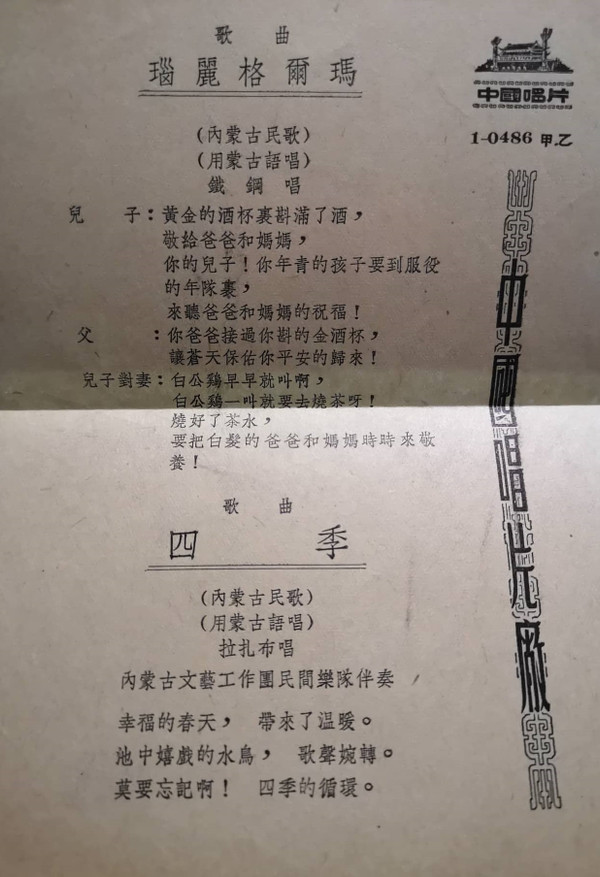 歌曲
瑙麗格爾瑪
(內蒙古民歌)
(用蒙古語唱)
鐵鋼唱
兒子：黃金的酒杯裏斟滿了酒，
敬給爸爸和媽媽，
你的兒子！你年青的孩子要到服役
的年隊裏，
來聽爸爸和媽媽的祝福！
父：你爸爸接過你斟的金酒杯，
讓蒼天保佑你平安的歸來！
兒子對妻：白公鷄早早就叫啊，
白公鷄一叫就要去燒茶呀！
燒好了茶水，
要把白髮的爸爸和媽媽時時來敬
養！
歌曲
四季
(內蒙古民歌)
(用蒙古語唱)
拉扎布唱
內蒙古文藝工作團民間樂隊伴奏
幸福的春天，帶來了溫暖。
池中嬉戲的水鳥，歌聲婉轉。
莫要忘記啊！四季的循環。
中國唱片
1-0486 甲.乙
中國唱片廠